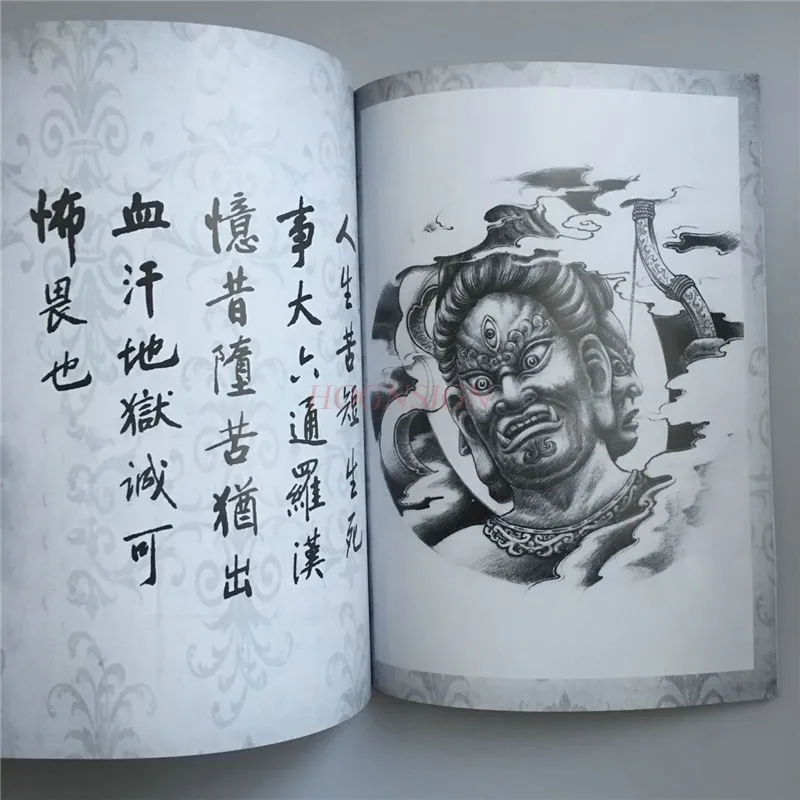 人生苦短生死
事大六通羅漢
憶昔墮苦猶出
血汗地獄誠可
怖畏也
HOGNSIGN